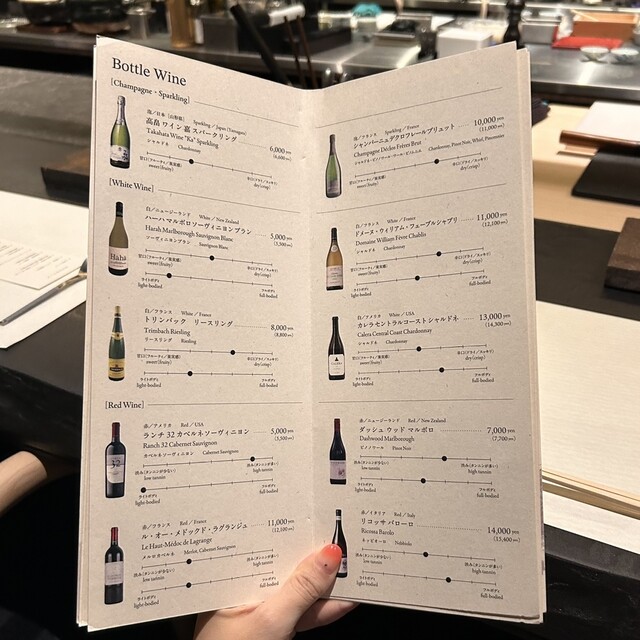 Bottle Wine
[Champagne・Sparkling]
泡／日本（山形県） Sparkling / Japan (Yamagata)
高畠ワイン 嘉 スパークリング 6,000 yen
Takahata Wine "Ka" Sparkling (6,600 yen)
シャルドネ Chardonnay
甘口(フルーティ／葡萄感) 辛口(ドライ／スッキリ)
sweet(fruity) dry(crisp)
[White Wine]
白／ニュージーランド White / New Zealand
ハーハ マルボロ ソーヴィニヨンブラン 5,000 yen
Harah Marlborough Sauvignon Blanc (5,500 yen)
ソーヴィニヨンブラン Sauvignon Blanc
甘口(フルーティ／葡萄感) 辛口(ドライ／スッキリ)
sweet(fruity) dry(crisp)
ライトボディ フルボディ
light-bodied full-bodied
白／フランス White / France
トリンバック リースリング 8,000 yen
Trimbach Riesling (8,800 yen)
リースリング Riesling
甘口(フルーティ／葡萄感) 辛口(ドライ／スッキリ)
sweet(fruity) dry(crisp)
ライトボディ フルボディ
light-bodied full-bodied
[Red Wine]
赤／アメリカ Red / USA
ランチ 32 カベルネソーヴィニヨン 5,000 yen
Ranch 32 Cabernet Sauvignon (5,500 yen)
カベルネソーヴィニヨン Cabernet Sauvignon
渋み(タンニンが少ない) 渋み(タンニンが多い)
low tannin high tannin
ライトボディ フルボディ
light-bodied full-bodied
赤／フランス Red / France
ル・オー・メドック ド・ラグランジュ 11,000 yen
Le Haut-Médoc de Lagrange (12,100 yen)
メルロ カベルネ Merlot, Cabernet Sauvignon
渋み(タンニンが少ない) 渋み(タンニンが多い)
low tannin high tannin
ライトボディ フルボディ
light-bodied full-bodied
泡／フランス Sparkling / France
シャンパーニュ デクロ フレール ブリュット 10,000 yen
Champagne Déclos Frères Brut (11,000 yen)
Chardonnay, Pinot Noir,
甘口(フルーティ／葡萄感) 辛口(ドライ／スッキリ)
sweet(fruity) dry(crisp)
白／フランス White / France
ドメーヌ・ウィリアム・フェーブル シャブリ 11,000 yen
Domaine William Fèvre Chablis (12,100 yen)
シャルドネ Chardonnay
甘口(フルーティ／葡萄感) 辛口(ドライ／スッキリ)
sweet(fruity) dry(crisp)
ライトボディ フルボディ
light-bodied full-bodied
白／アメリカ White / USA
カレラ セントラルコースト シャルドネ 13,000 yen
Calera Central Coast Chardonnay (14,300 yen)
シャルドネ Chardonnay
甘口(フルーティ／葡萄感) 辛口(ドライ／スッキリ)
sweet(fruity) dry(crisp)
ライトボディ フルボディ
light-bodied full-bodied
赤／ニュージーランド Red / New Zealand
ダッシュウッド マルボロ 7,000 yen
Dashwood Marlborough (7,700 yen)
ピノノワール Pinot Noir
渋み(タンニンが少ない) 渋み(タンニンが多い)
low tannin high tannin
ライトボディ フルボディ
light-bodied full-bodied
赤／イタリア Red / Italy
リコッサ バローロ 14,000 yen
Ricossa Barolo (15,400 yen)
ネッビオーロ Nebbiolo
渋み(タンニンが少ない) 渋み(タンニンが多い)
low tannin high tannin
ライトボディ フルボディ
light-bodied full-bodied